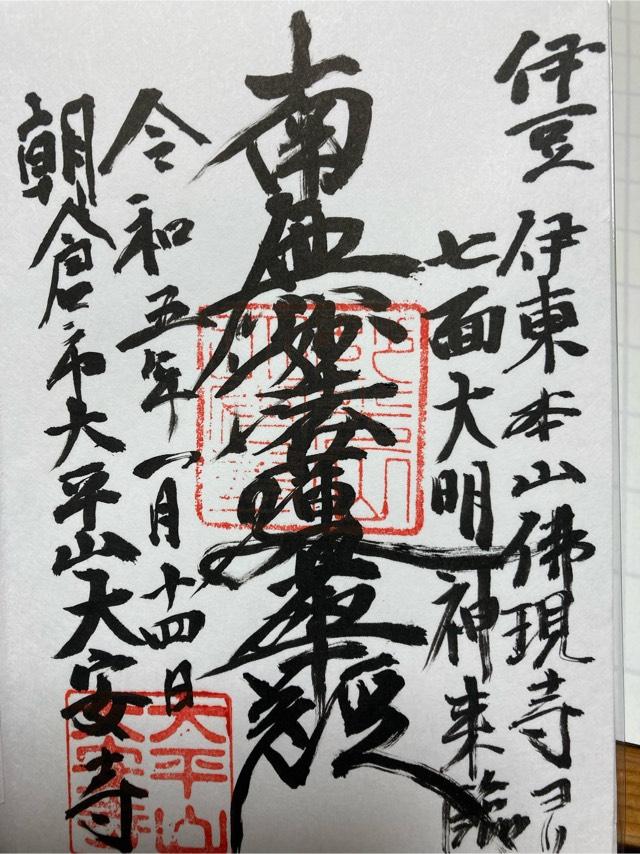 伊豆 伊東 本山 佛現寺ヨリ
七面大明神来臨
南無妙法蓮華経
令和五年一月十四日
朝倉市大平山大安寺
大平山
大安寺